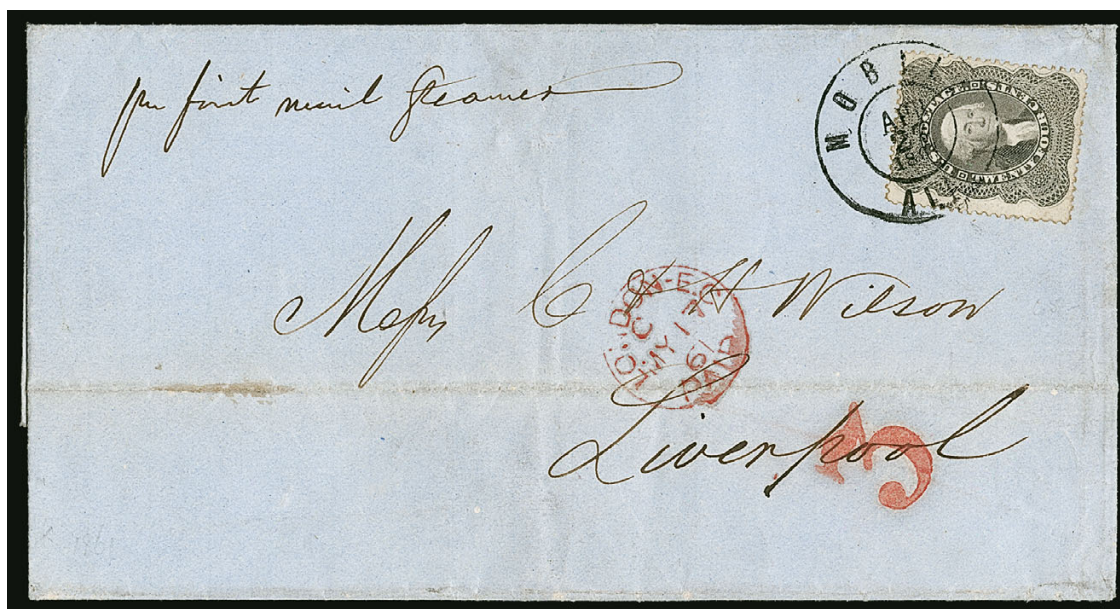 per first mail Steamer
MOBILE
ALA
U.S. POSTAGE
Mess C & H Wilson
LONDON-E.C
C
MY 17
61
PAID
Liverpool
3